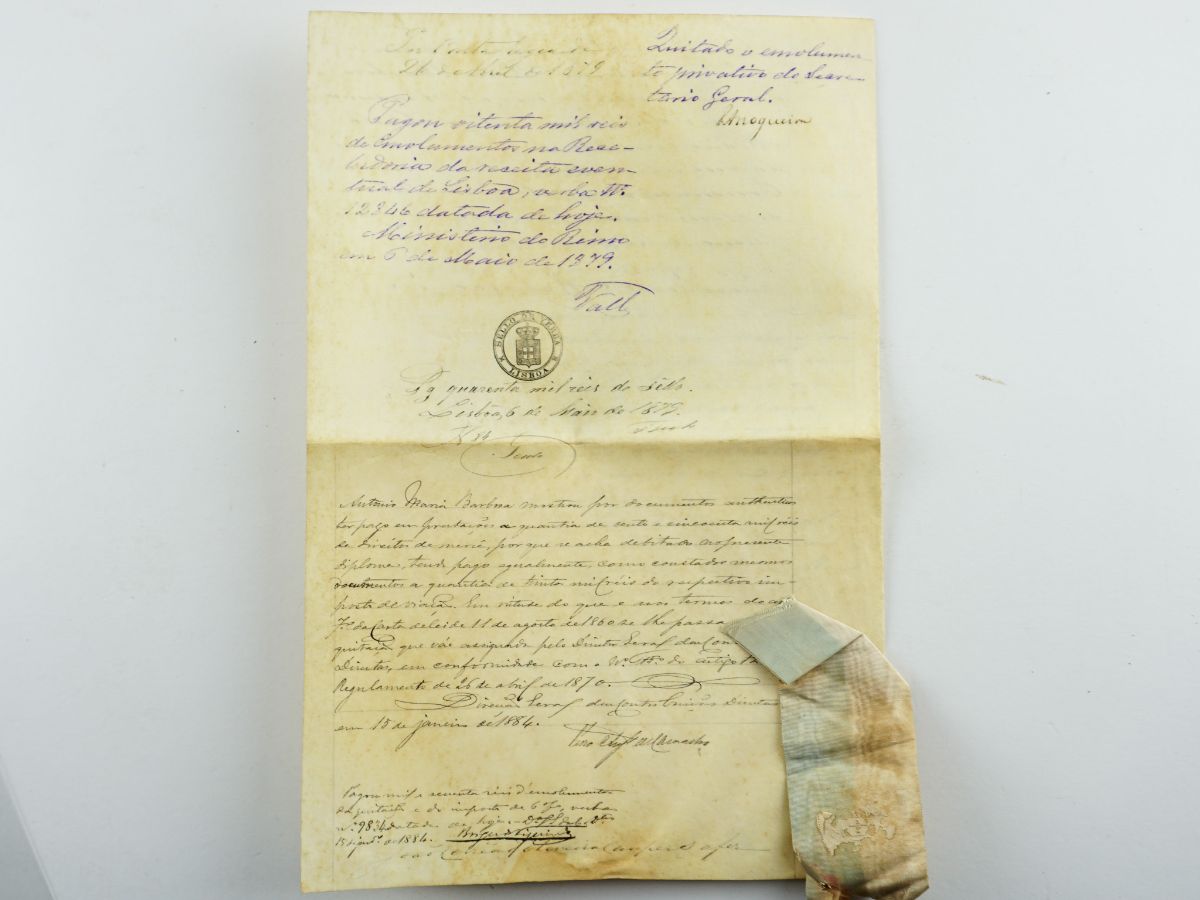 Por
26 de Abril de 1879
Quitado o emolumen-
to privativo do Secre-
tario Geral.
Pagou oitenta mil reis
de Emolumentos na Rece-
bedoria da receita even-
tual de Lisboa, verba Nº
12346 datada de hoje.
Ministerio do Reino
em 6 de Maio de 1879.
SELLO DE VERBA
LISBOA
Pg quarenta mil reis de sello.
Lisboa, 6 de Maio de 1879.
Antonio Maria Barbosa mostrou por documentos authenticos
ter pago em prestações a quantia de cento e cincoenta mil reis
de direitos de mercê, por que se acha debitado no presente
diploma, tendo pago egualmente, como consta dos mesmos
documentos a quantia de trinta mil reis do respectivo im-
posto de viação. Em virtude do que e nos termos do
7º da Carta de lei de 11 de agosto de 1860 se lhe passa
quitação que vae assignada pelo Director Geral das
Directas, em conformidade com o Nº do artigo
Regulamento de 26 de abril de 1870.
Direcção Geral das Contribuições Directas
em 15 de janeiro de 1884.
Pagou mil e setenta reis d'emolumentos
da quitação e do imposto de 6%, verba
nº 9834 datada de hoje
15 de 1884.